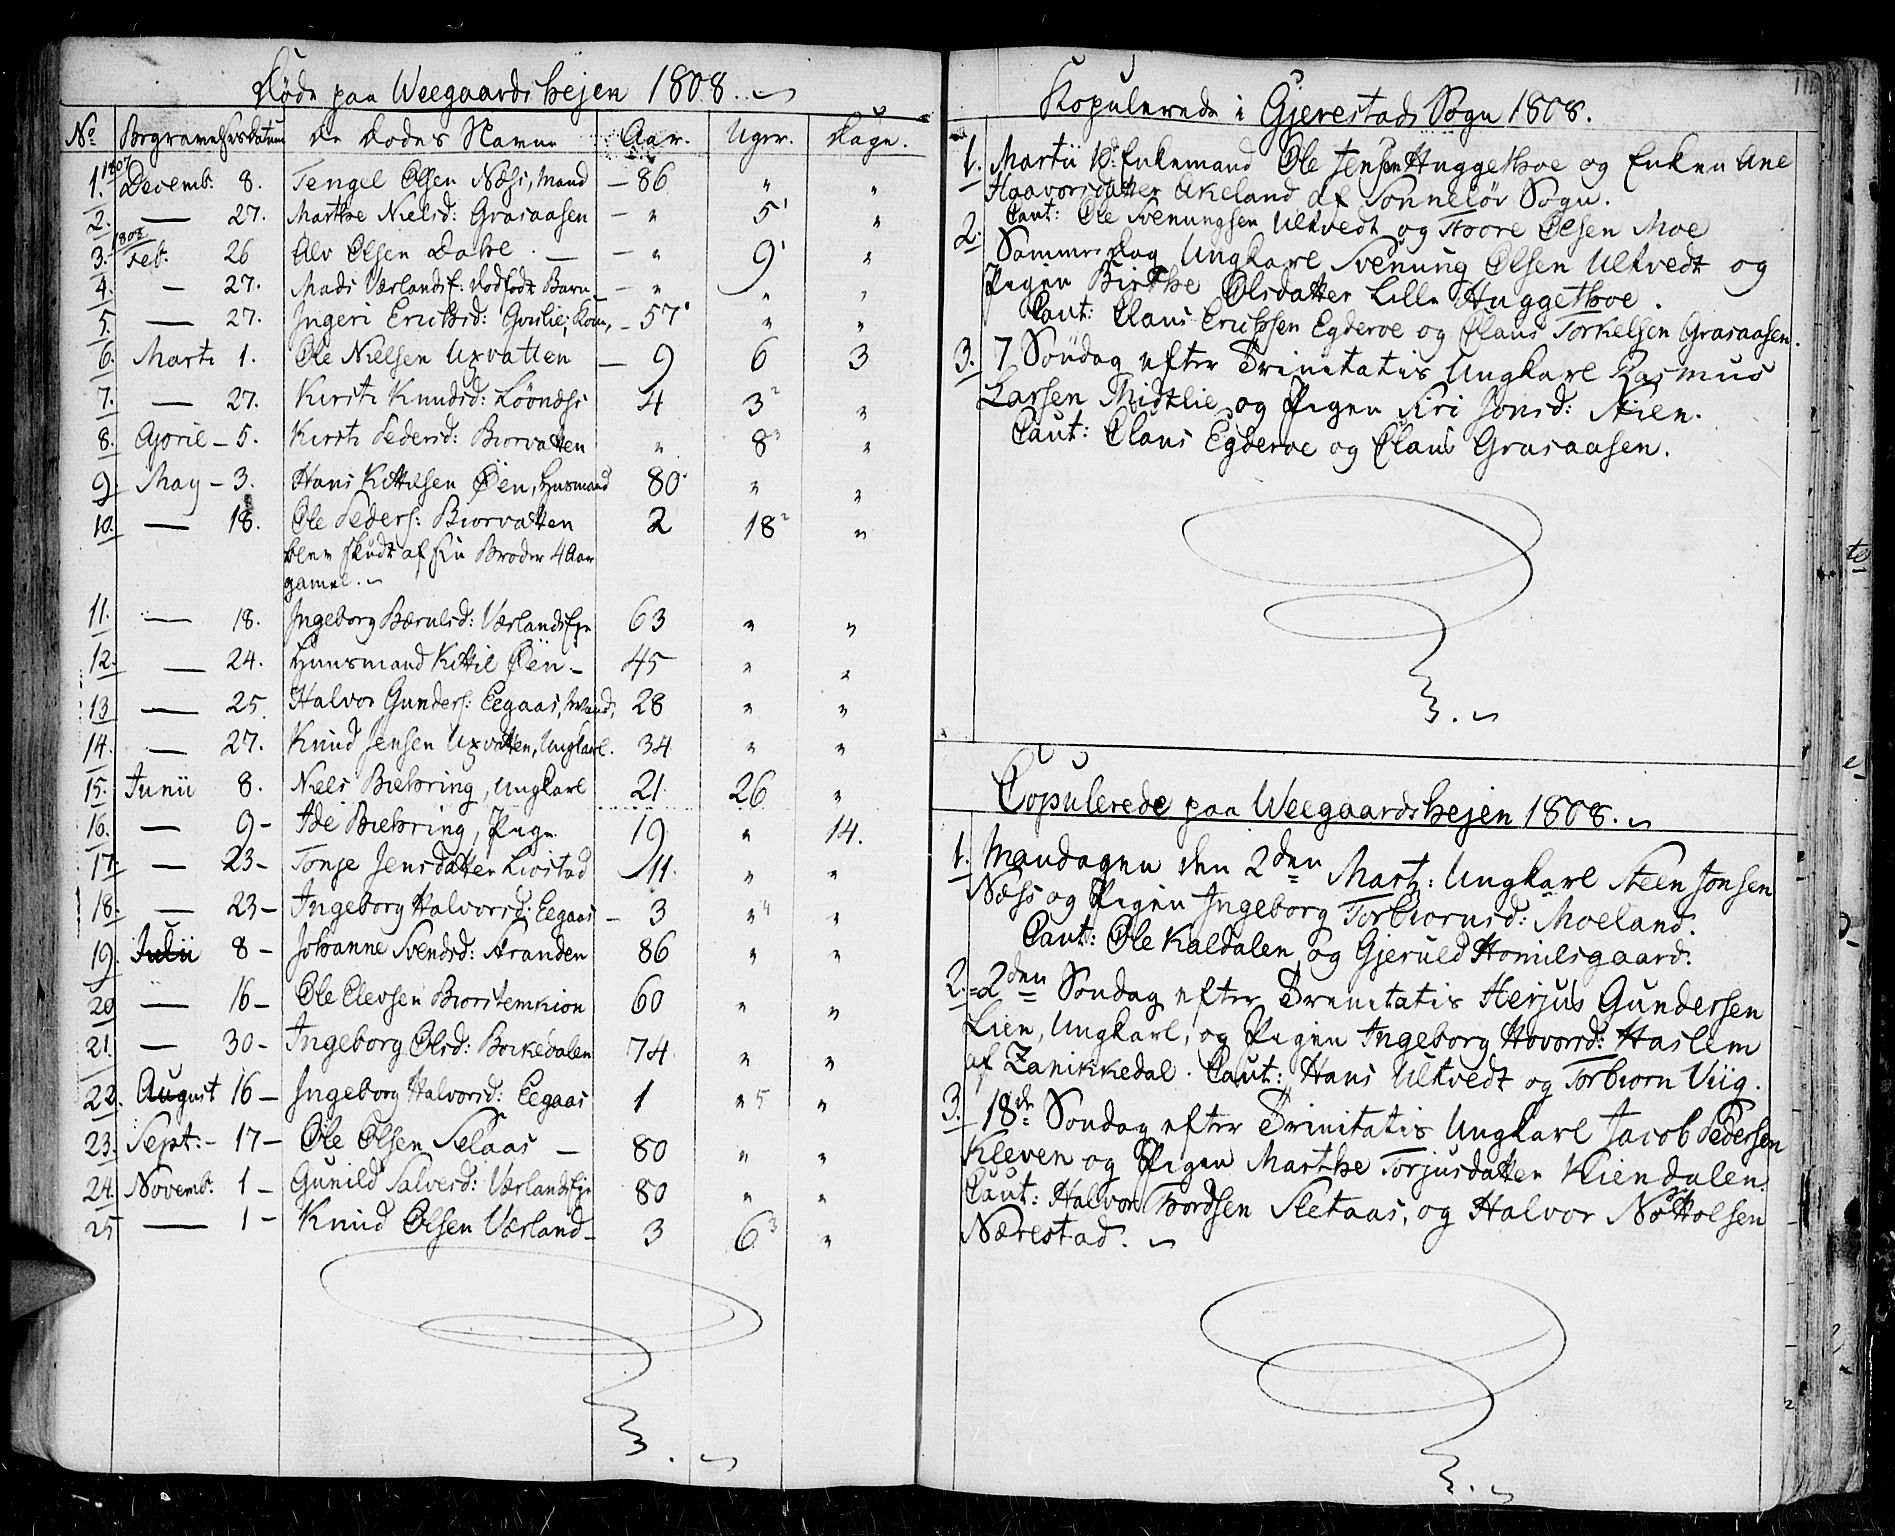 Døde paa Weegaardshejen 1808.
No Begravelsesdatum De Dødes Navne Aar. Uger. Dage.
1807
1. Decemb: 8. Tengel Olsen Næss, Mand — 86 " "
2. — 27. Marthe Nielsd: Grasaasen — " 5 "
1808
3. Feb. 26 Alv Olsen Dahe — " 9 "
4. — 27. Mads Værlands f: dødfødt Barn — " " "
5. — 27. Ingeri Erichsd: Kone, — 57 " "
6. Marti 1. Ole Nielsen Uxvatten — 9 6 3
7. — 27. Kirsti Knudsd: Löonæss 4 3 "
8. April — 5. Kirsti Pedersd: Biorvatten " 8 "
9. May — 3. Hans Kittilsen Øen, Husmand 80 " "
10. — 18. Ole Peders: Biorvatten 2 18 "
blev skudt af sin Broder 4 Aar
gamel.
11. — 18. Ingeborg Værlandseje 63 " "
12. — 24. Huusmand Kittil Øen — 45 " "
13 — 25. Halvor Gunders: Eegaas, Mand, 28 " "
14. — 27. Knud Jensen Uxvatten, Ungkarl. 34 " "
15. Junii 8. Niels Biehring, Ungkarl 21 26 "
16. — 9 — Ide Biehring, Pige 19 " 14.
17. — 23 — Tonje Jensdatter Liostad 11. " "
18. — 23 — Ingeborg Halvorsd: Eegaas — 3 " 4 "
19. Julii 8 — Johanne Svendsd: Stranden 86 " "
20 — 16 — Ole Elevsen Biorstemkion 60 " "
21. — 30 — Ingeborg Olsd: Borkedalen 74 " "
22. August 16 — Ingeborg Halvorsd: Eegaas 1 " 5 "
23. Sept: — 17 — Ole Olsen Selaas — 80 " "
24. Novemb. 1 — Gunild Salvesd: Værlandseje 80 " "
25 — 1 — Knud Olsen Værland — 3 6 "
Kopulerede i Gjerestads Sogn 1808.
1. Martii Enkemand Ole Jensen Huggethoe og Enken Ane
Haavorsdatter Akeland af Sonneløv Sogn.
Caut: Ole Svenungsen Ulkvedt og Thore Olsen Moe
2. Sommersdag Ungkarl Svenung Olsen Ulkvedt og
Pigen Birthe Olsdatter Lille Huggethoe.
Caut: Claus Erichsen Egderoe og Claus Torkelsen Grasaasen.
3. 7 Söndag efter Trinitatis Ungkarl Rasmus
Larsen Midtlie og Pigen Siri Jonsd: Stien.
Caut: Claus Egderoe og Claus Grasaasen.
Copulerede paa Weegaardshejen 1808.
1. Mandagen den 2den Martz: Ungkarl Steen Jonsen
Næss og Pigen Ingeborg Torbiornsd: Moeland.
Caut: Ole Kaldalen og Gjeruld Homilsgaard.
2. 2den Söndag efter Trinitatis Herjus Gundersen
Lien, Ungkarl, og Pigen Ingeborg Hovorsd: Haslem
af Zanikkedal. Caut: Hans Ulkvedt og Torbiorn Viig.
3. 18de Söndag efter Trinitatis Ungkarl Jacob Pedersen
Kleven og Pigen Marthe Torjusdatter Kiendalen.
Caut: Halvor Thordsen Sletaas, og Halvor
Nærestad.